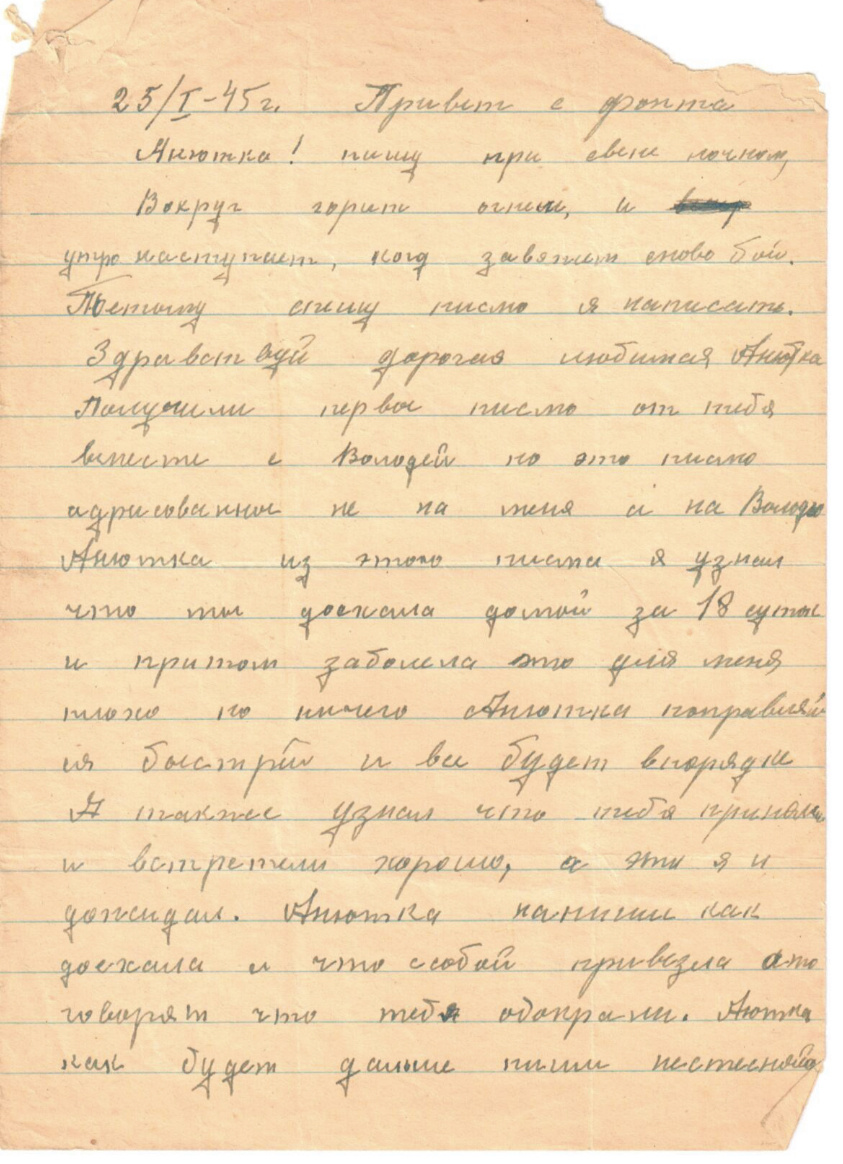 25/I-45г. Привет с фронта
Анютка! пишу при свете ночном,
Вокруг горит огнем, и
утро наступает, когд завяжем снова бой.
Поетому спешу писмо я написать.
Здравствуй дорогая любимая Анютка
Получили первое писмо от тебя
вместе с Володей но это писмо
адрисованное не на меня а на Володю
Анютка из этого писма я узнал
что ты доехала домой за 18 суток
и притом заболела это для меня
плохо но ничего Анютка поправляй
ся быстрей и все будет впорядке
А также узнал что тебя приняли
и встретели хорошо, а это я и
дожидал. Анютка напиши как
доехала и что ссобой привезла ато
говорят что тебя обокрали. Анютка
как будет дальше пиши нестесняйся